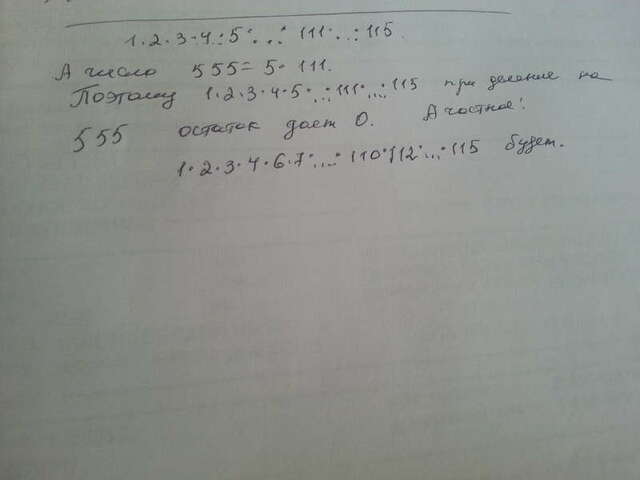 1·2·3·4·5·...·111·...·115.
А число 555 = 5·111.
Поэтому 1·2·3·4·5·...·111·...·115 при деление на
555 остаток дает 0. А частное:
1·2·3·4·6·7·...·110·112·...·115 будет.